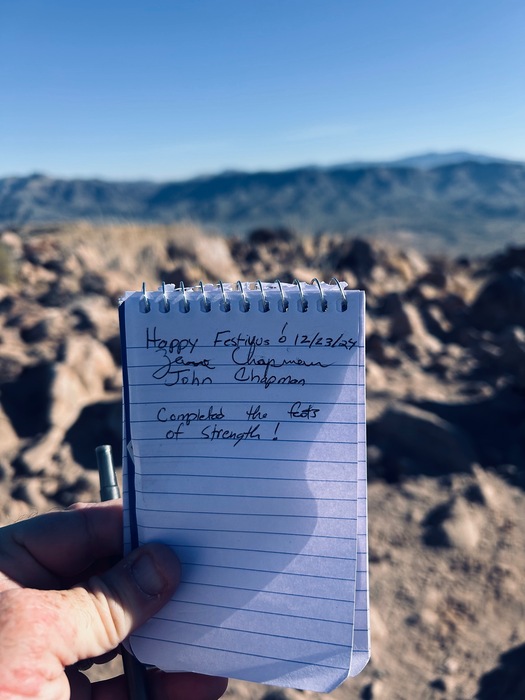 Happy Festivus! 12/23/24
Chapman
John Chapman
Completed the feats
of strength!